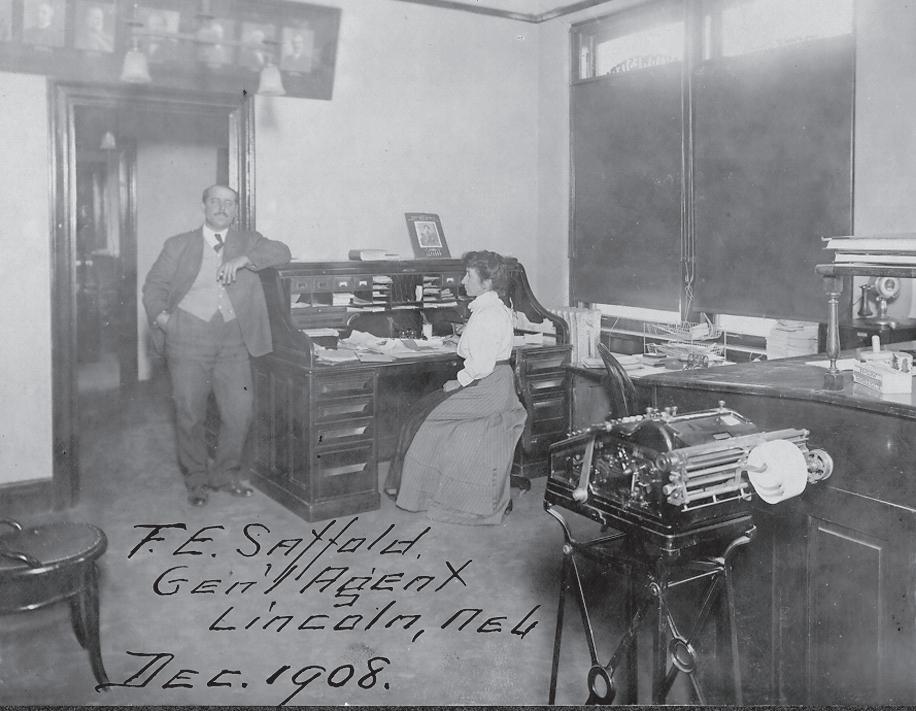 F.E. Saffold,
Gen'l Agent
Lincoln, Neb
Dec. 1908.